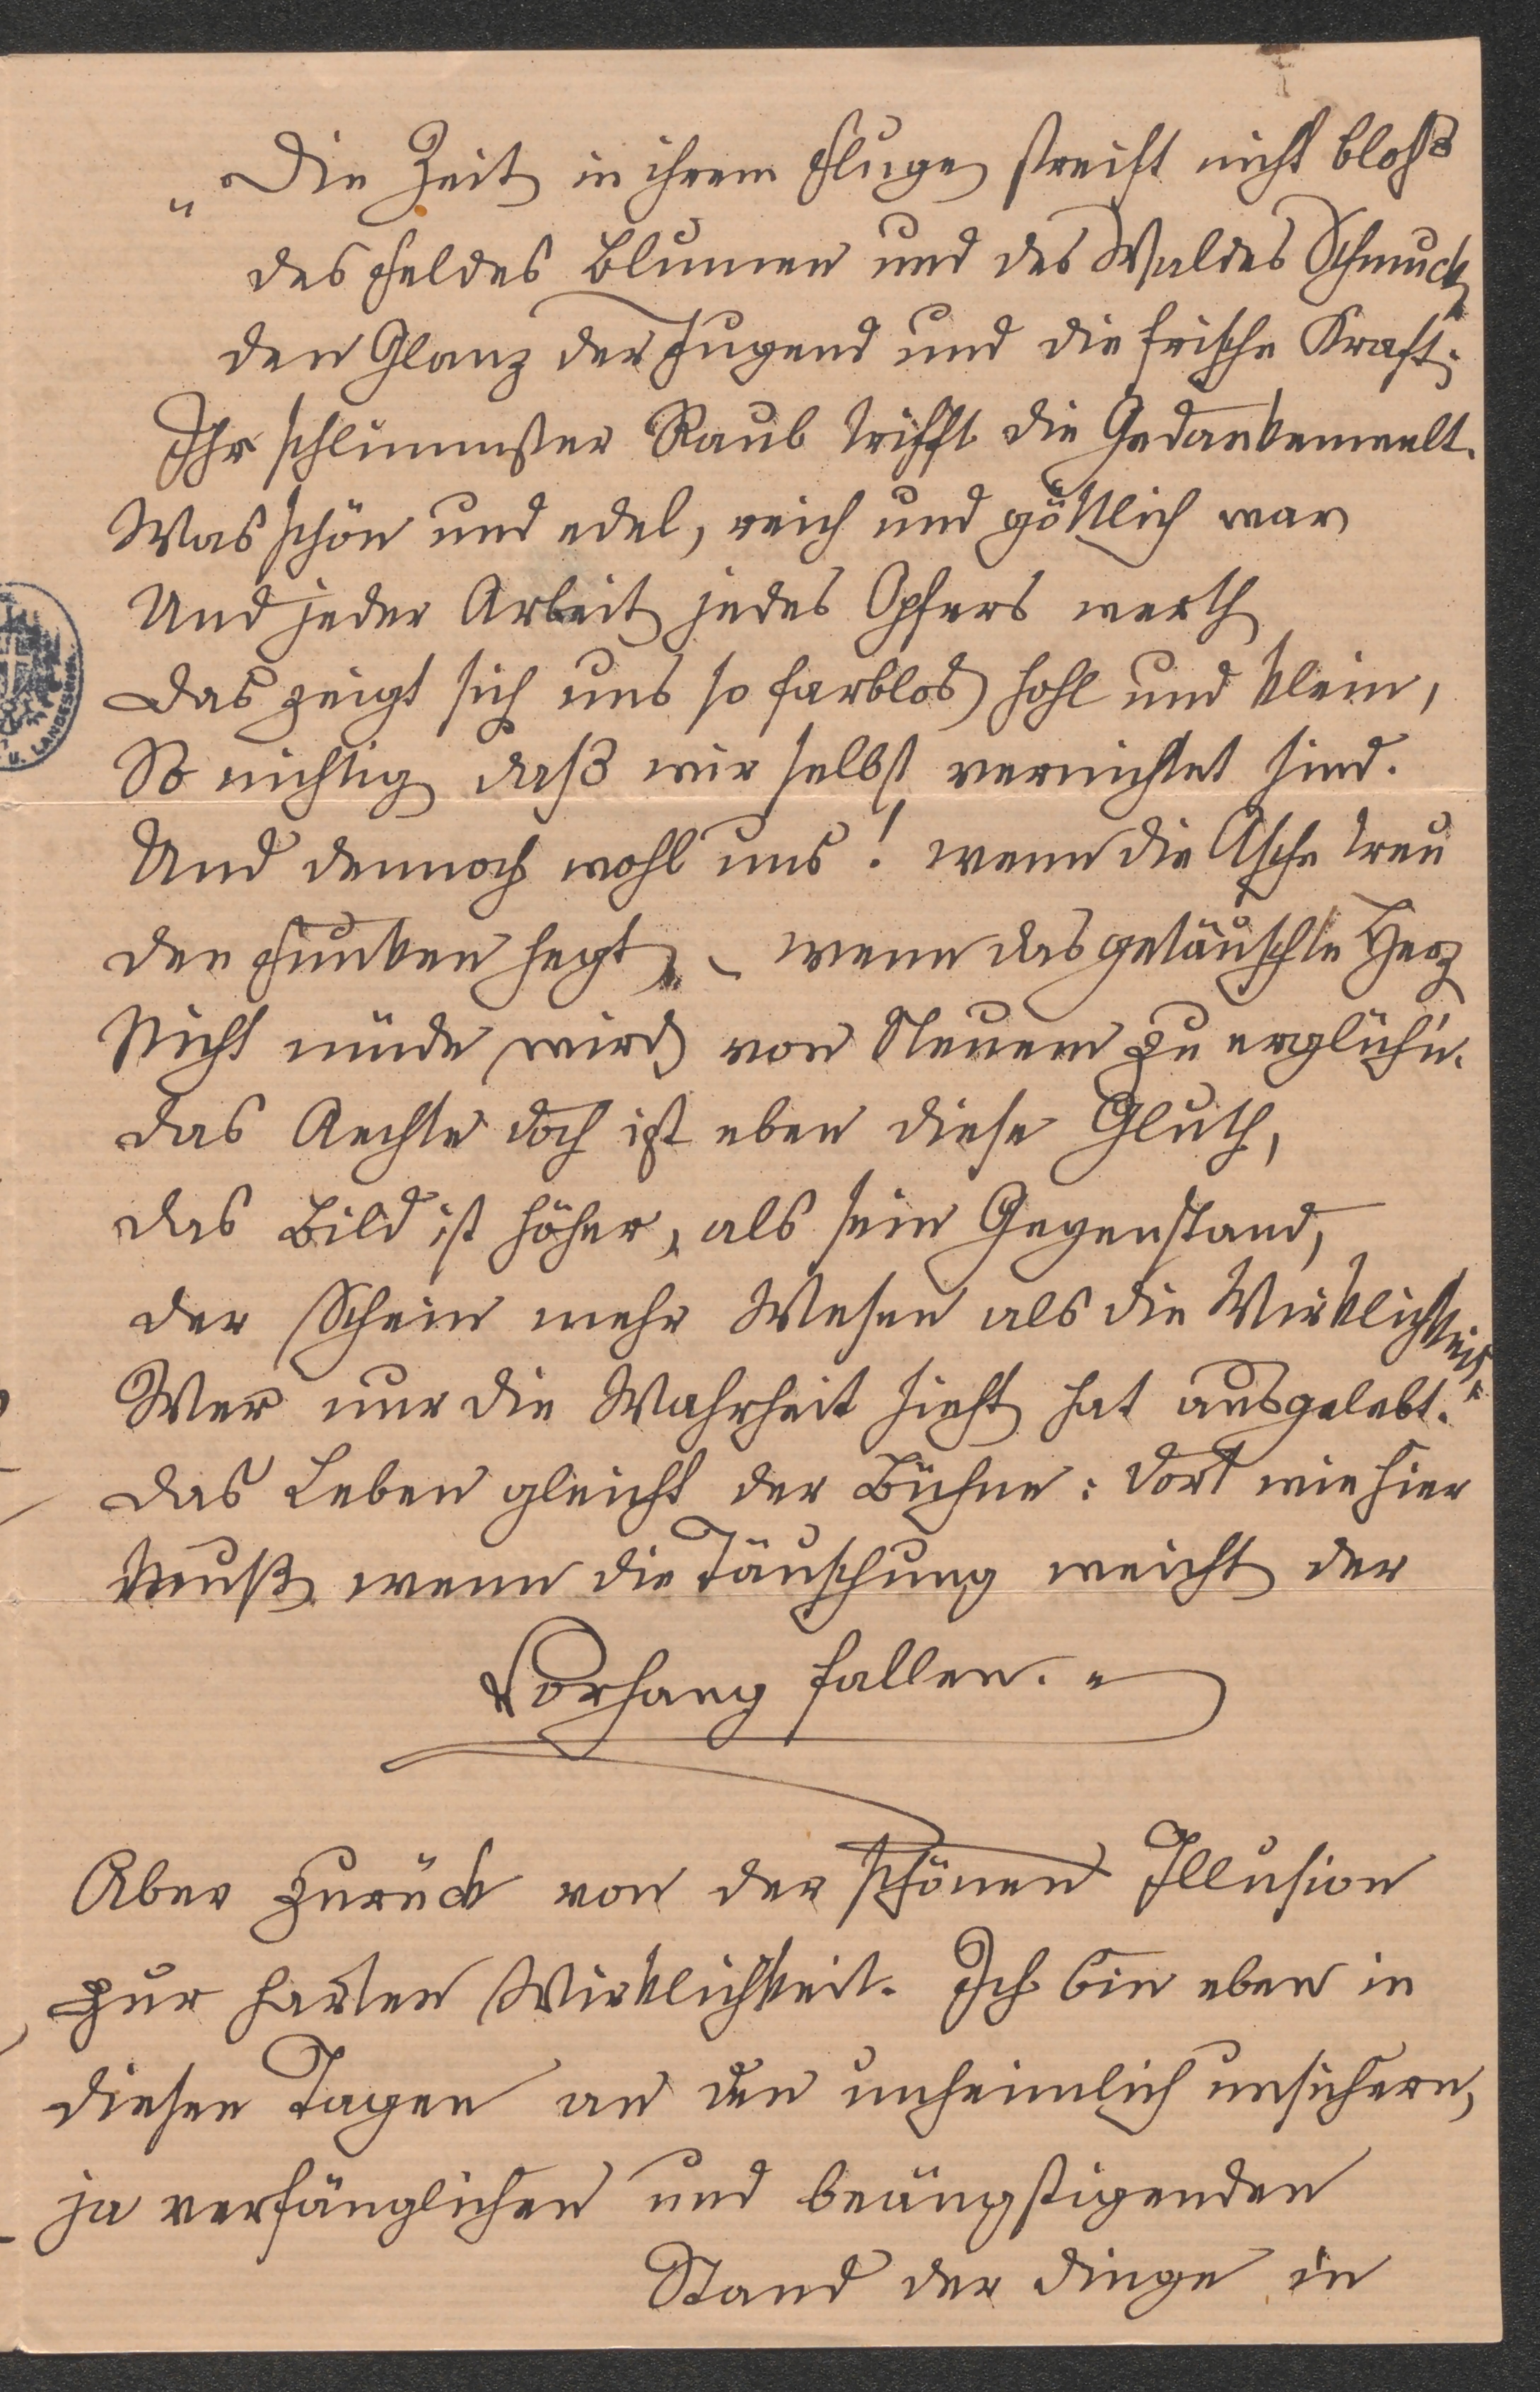 „Die Zeit in ihrem Fluge streift nicht blohs
des Feldes Blumen und des Waldes Schmuck,
den Glanz der Jugend und die frische Kraft:
Ihr schlimmster Raub trifft die Gedankenwelt.
Was schön und edel, reich und göttlich war
Und jeder Arbeit, jedes Opfers werth,
Das zeigt sich uns so farblos, hohl und klein,
So nichtig, daß wir selbst vernichtet sind.
Und dennoch wohl uns! wenn die Asche treu
den Funken hegt, – wenn das getäuschte Herz
Nicht müde wird, von Neuem zu erglüh'n.
das Aechte doch ist eben diese Gluth,
das Bild ist höher, als sein Gegenstand,
der Schein mehr Wesen als die Wirklichkeit.
Wer nur die Wahrheit sieht, hat ausgelebt."
das Leben gleicht der Bühne: dort wie hier
Muß, wenn die Täuschung weicht, der
Vorhang fallen. "
Aber zurück von der schönen Illusion
zur harten Wirklichkeit. Ich bin eben in
diesen Tagen an den unheimlich unsichern,
ja verfänglichen und beängstigenden
Stand der Dinge in
U. LANDESBIBL.